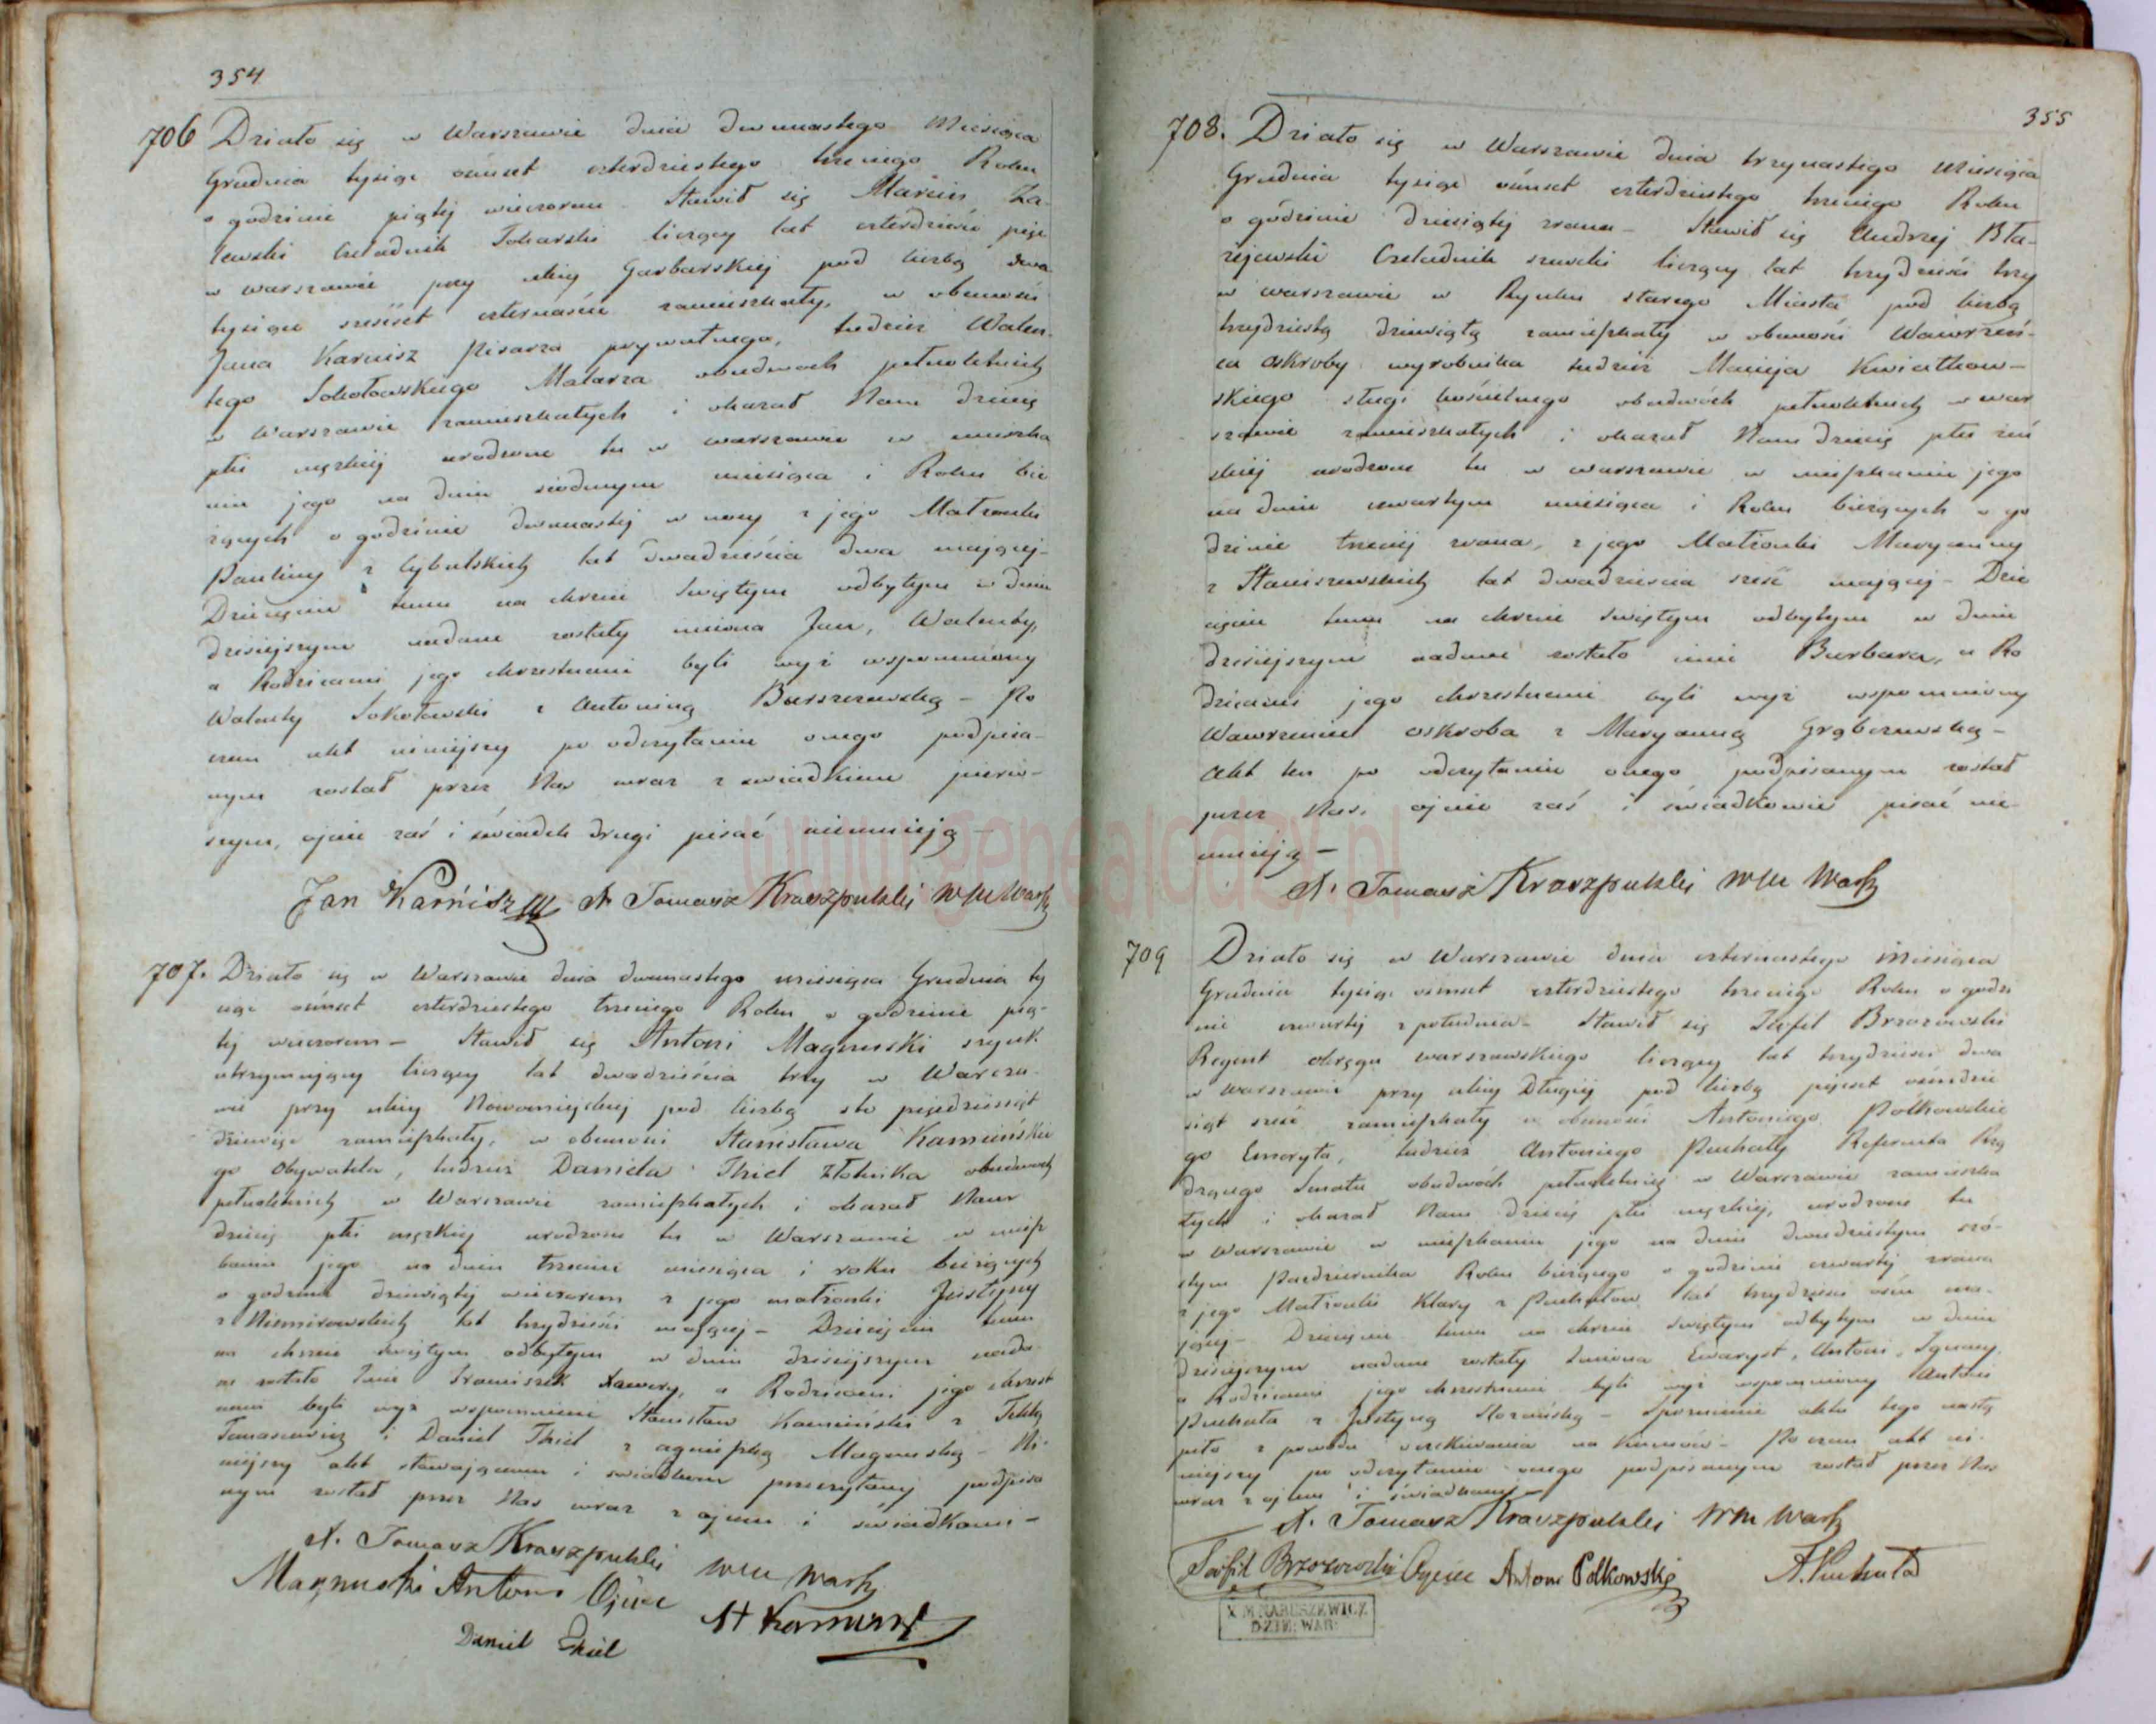 354
706 Działo się w Warszawie dnia dwunastego Miesiąca
Grudnia tysiąc ośmset czterdziestego trzeciego Roku
o godzinie piątej wieczorem Stawił się Marcin Za-
lewski Czeladnik Tokarski liczący lat czterdzieści pięć
w warszawie przy ulicy Garbarskiej pod liczbą dwa
tysiące sześćset czternaście zamieszkały, w obecności
Jana Karnisz Pisarza prywatnego, tudzież Walen-
tego Sokołowskiego Malarza obudwoch pełnoletnich
w Warszawie zamieszkałych i okazał Nam dziecię
płci męzkiej urodzone tu w warszawie w mieszka
niu jego na dniu siodmym miesiąca i Roku bie
rzących o godzinie dwunastej w nocy z jego Małżonki
Pauliny z Cybulskich lat dwadzieścia dwa mającej-
Dziecięciu temu na chrzcie Świętym odbytym w dniu
dzisiejszym nadane zostały imiona Jan, Walenty,
a Rodzicami jego chrzestnemi byli wyż wspomniony
Walenty Sokołowski i Antonina Barszczewska – Po
czem akt niniejszy po odczytaniu onego podpisa-
nym został przez Nas wraz z swiadkiem pierw-
szym, ojciec zaś i świadek drugi pisać nieumieją –
Jan Karnisz X. Tomasz Kraszpulski
707. Działo się w Warszawie dnia dwunastego miesiąca Grudnia ty
siąc ośmset czterdziestego trzeciego Roku o godzinie pią-
tej wieczorem – Stawił się Antoni Magnuski szynk
utrzymujący liczący lat dwadzieścia trzy w Warsza-
wie przy ulicy Nowomiejskiej pod liczbą sto pięćdziesiąt
dziewięć zamieszkały, w obecności Stanisława Kamińskie
go Obywatela, tudzież Daniela Thiel Złotnika obudwoch
pełnoletnich w Warszawie zamieszkałych i okazał Nam
dziecię płci męzkiej urodzone tu w Warszawie w miesz
kaniu jego na dniu trzecim miesiąca i roku bieżących
o godzinie dziewiątej wieczorem z jego małżonki Justyny
z Niemirowskich lat trzydzieści mającej – Dziecięciu temu
na chrzcie świętym odbytym w dniu dzisiejszym nada
ne zostało Imie Franciszek Xawery, a Rodzicami jego chrzest
nemi byli wyż wspomnieni Stanisław Kamiński z Teklą
Tomasiewicz i Daniel Thiel z Agnieszką Magnuską – Ni
niejszy akt stawającemu i świadkom przeczytany podpisa
nym został przez Nas wraz z ojcem i świadkami –
X. Tomasz Kraszpulski
Magnuski Antoni Ojciec
Daniel Thiel
355
708. Działo się w Warszawie dnia trzynastego Miesiąca
Grudnia tysiąc ośmset czterdziestego trzeciego Roku
o godzinie dziesiątej zrana – Stawił się Andrzej Bła-
żejewski Czeladnik szewcki liczący lat trzydzieści trzy
w warszawie w Rynku starego Miasta pod liczbą
trzydziestą dziewiątą zamieszkały w obecności Wawrzeń-
ca Oskroby wyrobnika tudzież Macieja Kwiatkow-
skiego sługi kościelnego obudwóch pełnoletnich w war
szawie zamieszkałych i okazał Nam dziecię płci żeń
skiej urodzone tu w warszawie w mieszkaniu jego
na dniu czwartym miesiąca i Roku bieżących o go
dzinie trzeciej zrana, z jego Małżonki Maryanny
z Staniszewskich lat dwadzieścia sześć mającej – Dzie
cięciu temu na chrzcie świętym odbytym w dniu
dzisiejszym nadane zostało imie Barbara, a Ro
dzicami jego chrzestnemi byli wyż wspomniony
Wawrzeniec Oskroba z Maryanną Grąbczewską –
Akt ten po odczytaniu onego podpisanym został
przez Nas, ojciec zaś i świadkowie pisać nie
umieją –
X. Tomasz Kraszpulski
709 Działo się w Warszawie dnia czternastego Miesiąca
Grudnia tysiąc ośmset czterdziestego trzeciego Roku o godzi
nie czwartej z południa – Stawił się Teofil Brzozowski
Regent okręgu warszawskiego liczący lat trzydzieści dwa
w warszawie przy ulicy Długiej pod liczbą pięćset ośmdzie
siąt sześć zamieszkały w obecności Antoniego Pólkowskie
go Emeryta, tudzież Antoniego Puchały Referenta Rzą
dzącego Senatu obudwóch pełnoletnich w Warszawie zamieszka
łych i okazał Nam dziecię płci męzkiej, urodzone tu
w Warszawie w mieszkaniu jego na dniu dwudziestym szó-
stym Października Roku bieżącego o godzinie czwartej zrana
z jego Małżonki Klary z Puchałów lat trzydzieści ośm ma-
jącej – Dziecięciu temu na chrzcie świętym odbytym w dniu
dzisiejszym nadane zostały Imiona Ewaryst, Antoni, Ignacy,
a Rodzicami jego chrzestnemi byli wyż wspomniony Antoni
Puchała z Justyną – Spóźnienie aktu tego nastą
piło z powodu oczekiwania na Kumów – Po czem akt ni-
niejszy po odczytaniu onego podpisanym został przez Nas
wraz z ojcem i świadkami –
X. Tomasz Kraszpulski
Teofil Brzozowski Ojciec Antoni Polkowski A. Puchała
X M NARUSZEWICZ
DZIE: WAR:
www.genealodzy.pl